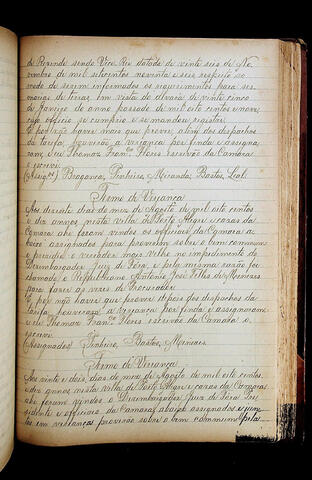 de Rezende sendo Vice Rei datada de vinte seis de No
vembro de mil setecentos noventa e seis respeito ao
modo de serem informados os requerimentos para ses
marias de terras, em vista do alvará de vinte cinco
de Janeiro do anno passado de mil oito centos e nove,
cujo officio se cumprio e se mandou registar.
E por não haver mais que prover, alem dos despachos
da tarifa, houverão a vereança por finda e assigna
ram, e eu Thomaz Franco Flores escrivão da Camara
o escrevi
(Assigos) Bragança, Pinheiro, Miranda, Bastos, Leal.
Termo de Vereança
Aos dezoito dias do mez de Agosto de mil oito centos
e dez annos nesta villa de Porto Alegre e casas da
Camara ahi foram vindos os officiaes da Camara a
baixo assignados para proverem sobre o bem commum
e presidio o vereador mais velho no impedimento do
Dezembargador Juiz de Fora, e pela mesma razão foi
chamado o Republicano Antonio José Telles de Menezes
para fazer as vezes de Procurador.
E por não haver que prover depois dos despachos da
tarifa houveram a vereança por finda e assignaram
e eu Thomaz Franco Flores escrivão da Camara o
escrevi
(Assignados) Pinheiro, Bastos, Menezes
Termo de Vereança
Aos vinte e dois dias do mez de Agosto de mil oito centos
e dez annos nesta villa de Porto Alegre e casas da Camara
ahi foram vindos o Dezembargador Juiz de Fora Pre
sidente e officiaes da Camara abaixo assignados e jun
tos em vereança proverão sobre o bem commum pela